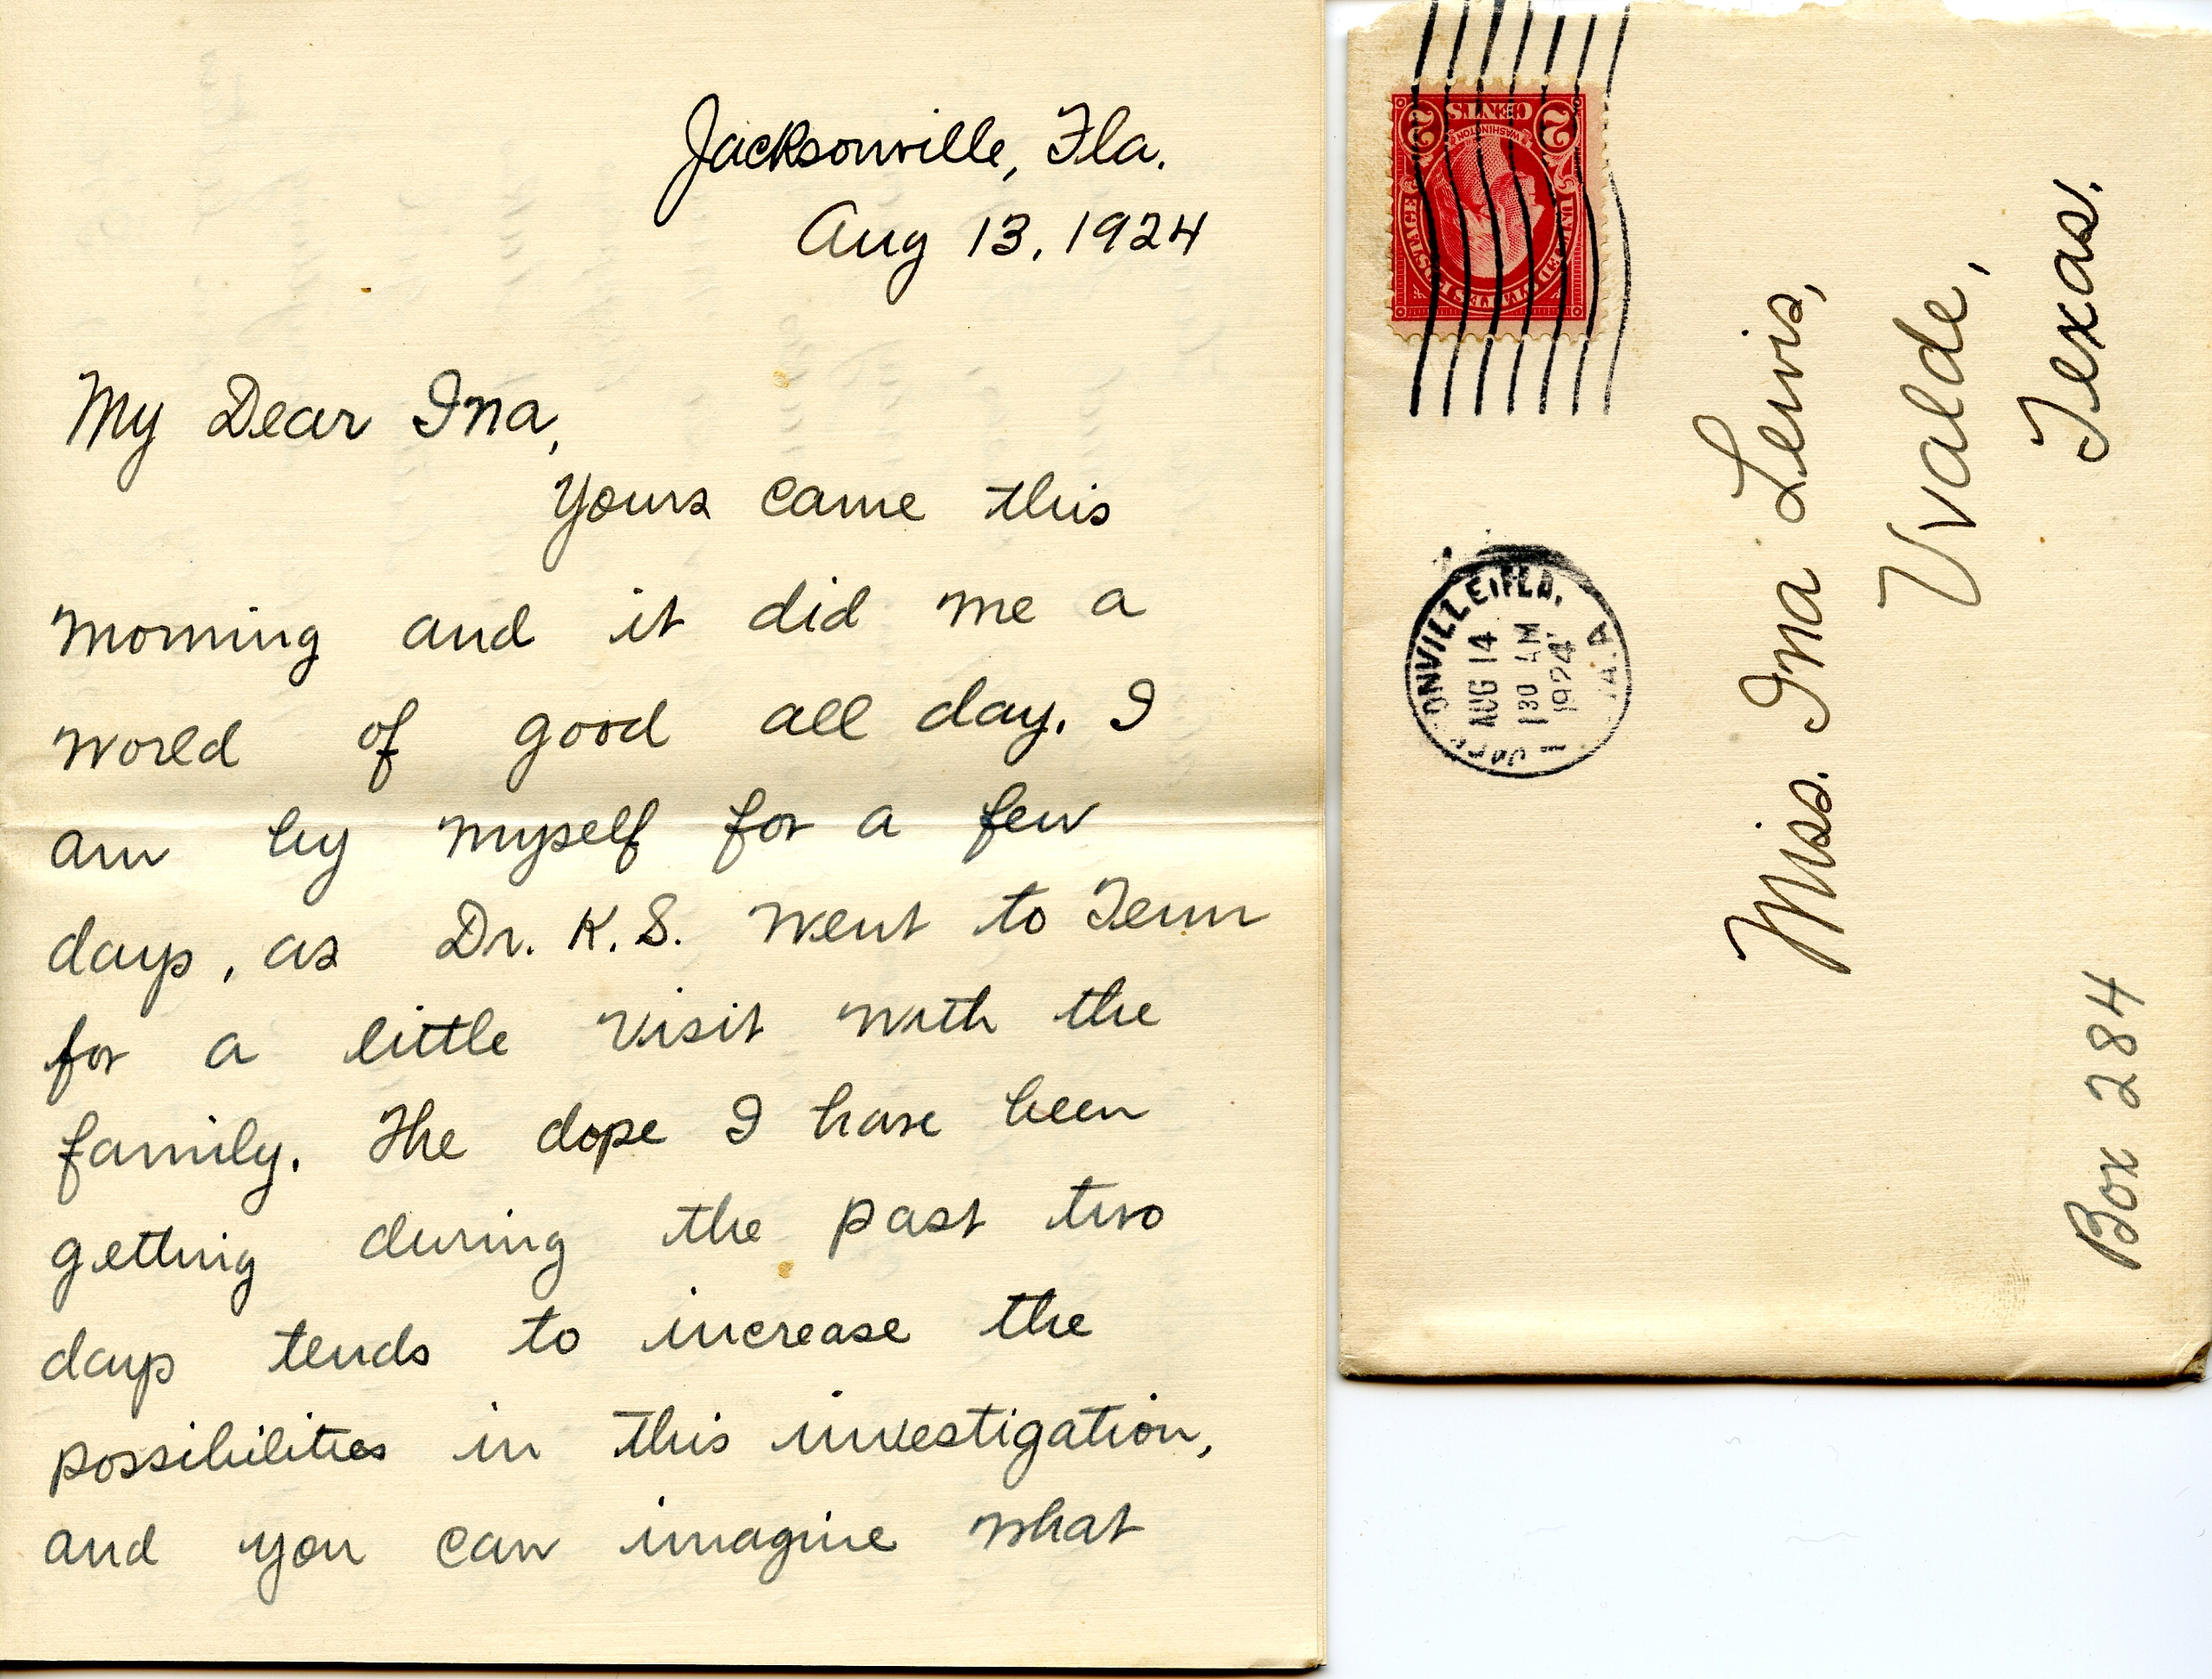 Jacksonville, Fla.
Aug 13, 1924
My Dear Ina,
Yours came this
morning and it did me a
world of good all day. I
am by myself for a few
days, as Dr. K.S. went to Tenn
for a little visit with the
family. The dope I have been
getting during the past two
days tends to increase the
possibilities in this investigation,
and you can imagine what
UNITED STATES POSTAGE
WASHINGTON
2 CENTS 2
ONVILLE, FLA.
AUG 14
130 AM
1924
Miss. Ina Lewis,
Uvalde,
Texas.
Box 284